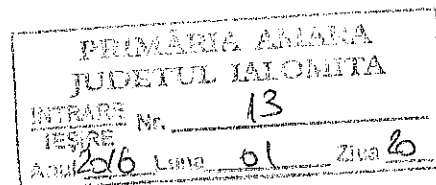 PRIMĂRIA AMARA
JUDEȚUL IALOMIȚA
INTRARE Nr. 13
IEȘIRE
Anul 2016 Luna 01 Ziua 20